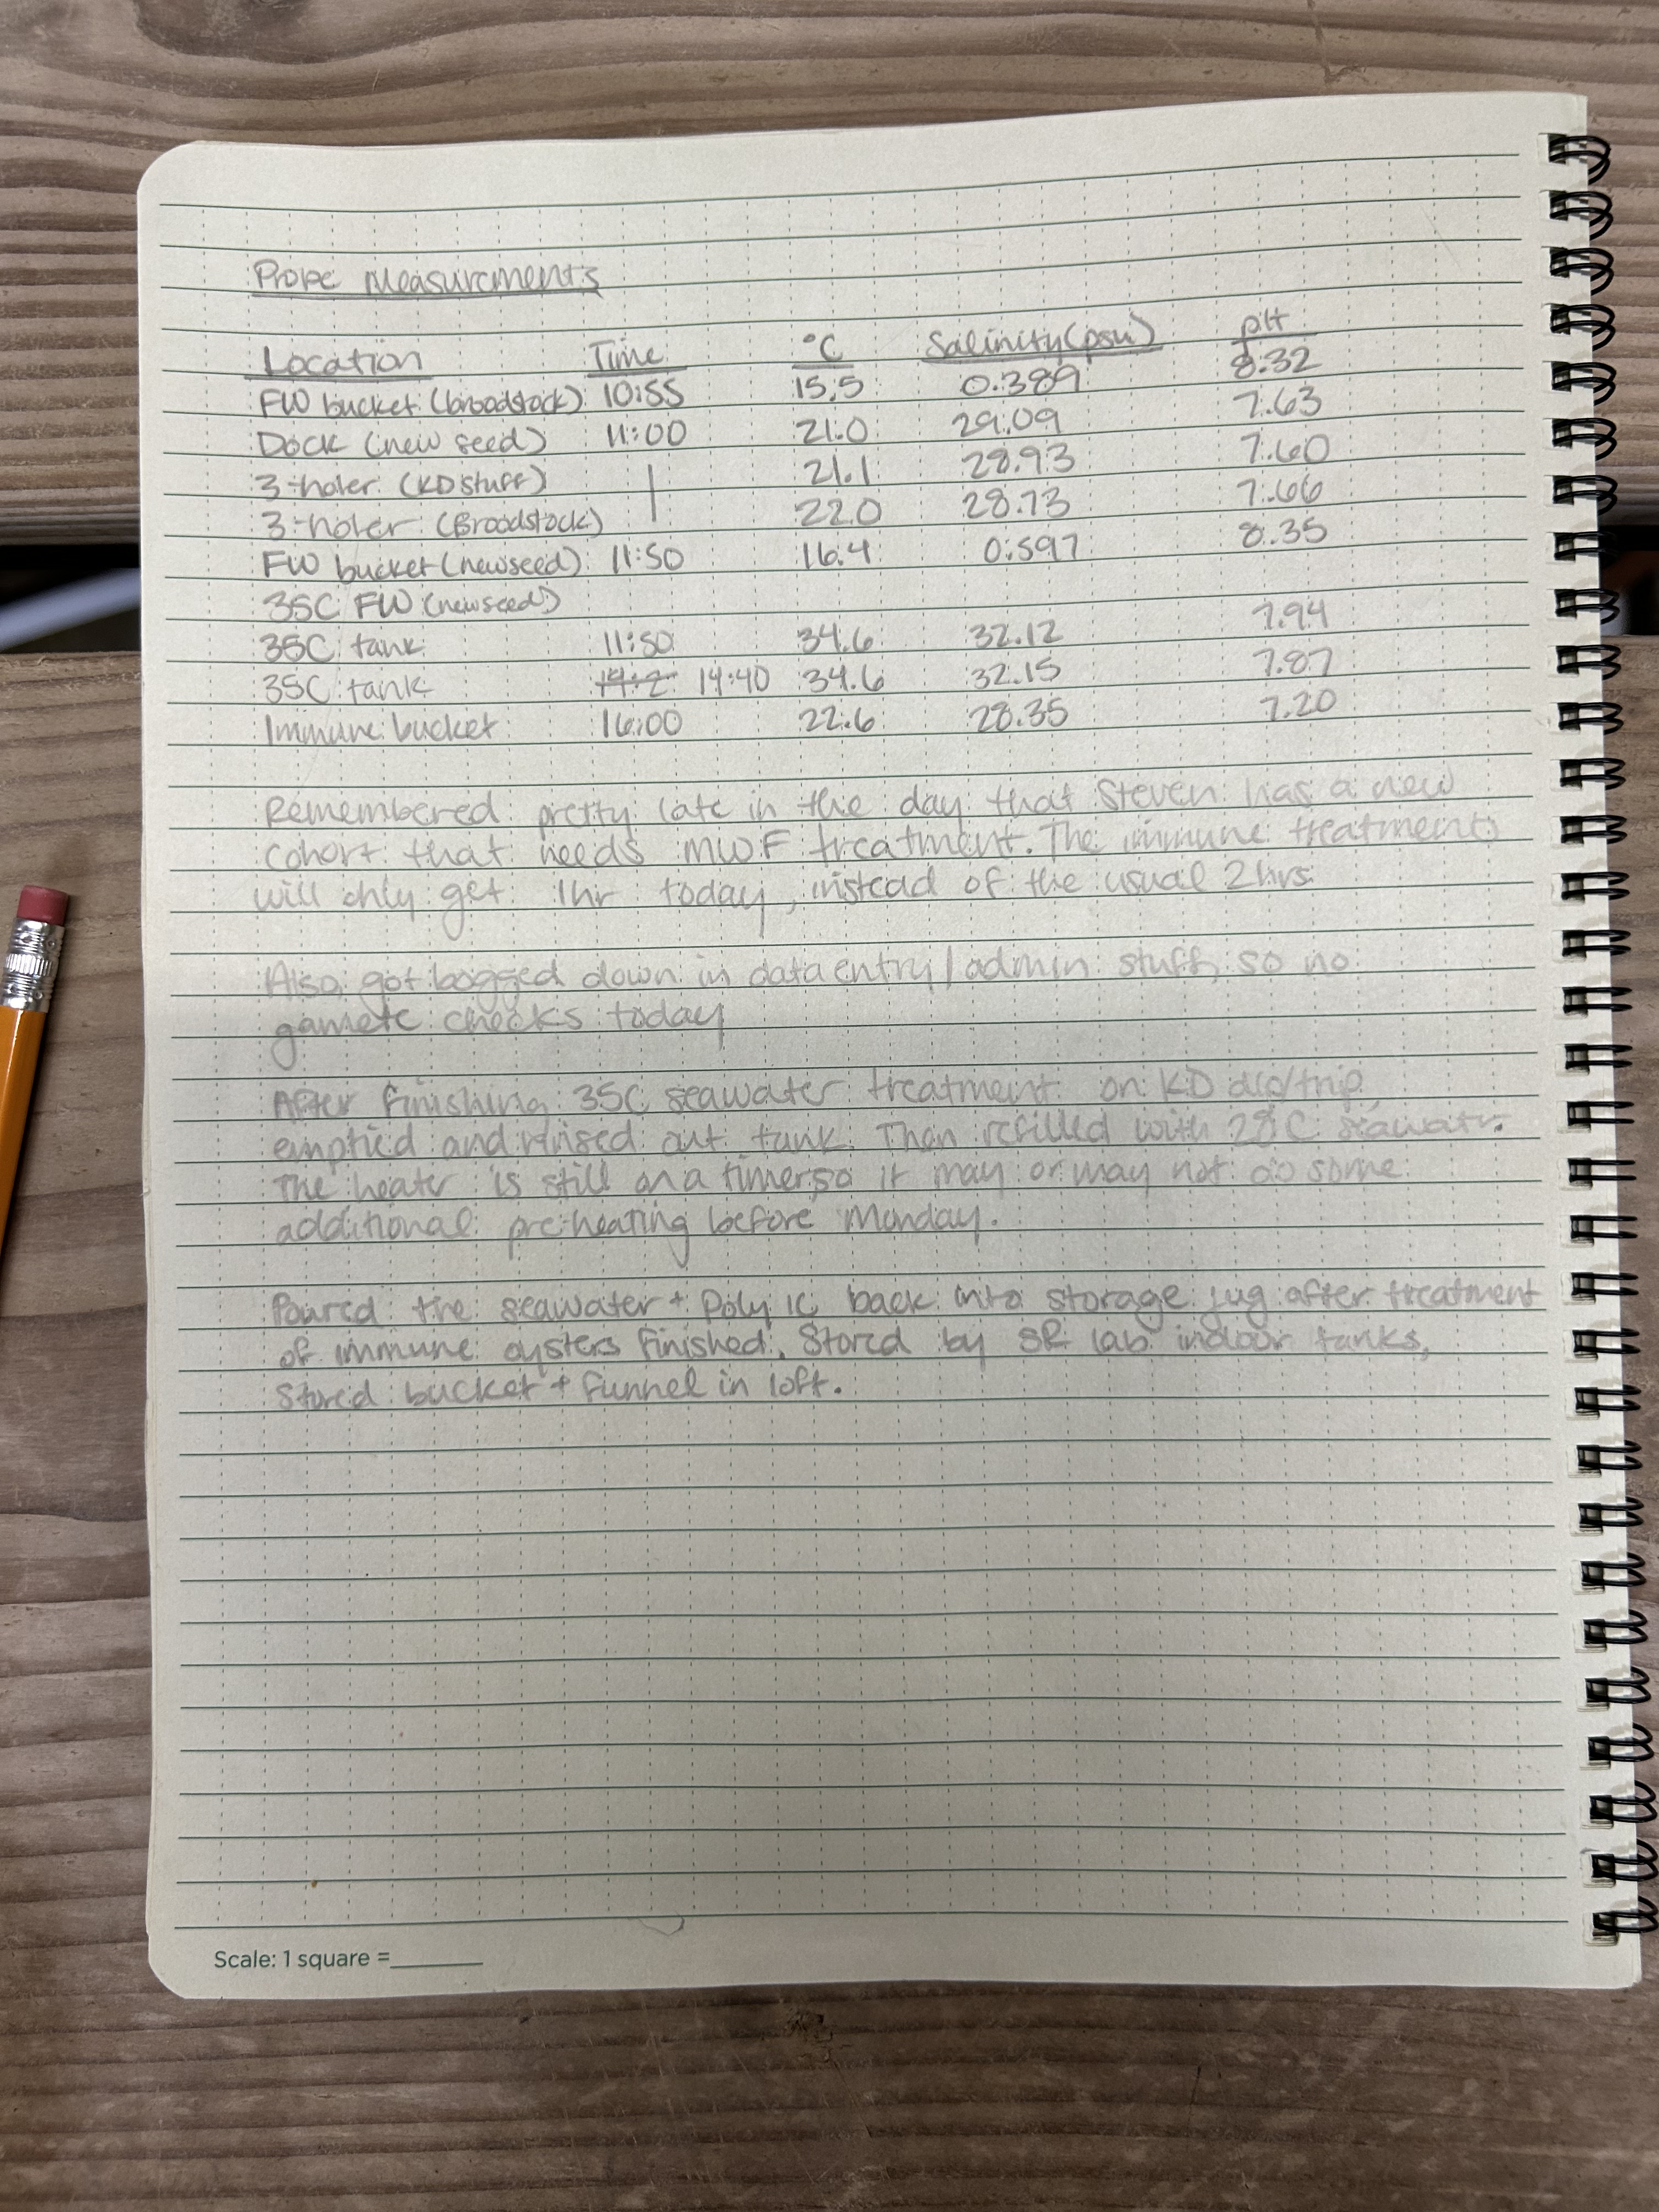 Probe Measurements
Location Time °C Salinity (psu) pH
FW bucket (broodstock) 10:55 15.5 0.389 8.32
Dock (new seed) 11:00 21.0 29.09 7.63
3-holer (KD stuff) | 21.1 28.93 7.60
3-holer (Broodstock) 22.0 28.73 7.66
FW bucket (new seed) 11:50 16.4 0.597 8.35
35C FW (new seed)
35C tank 11:50 34.6 32.12 7.94
35C tank 14:40 34.6 32.15 7.87
Immune bucket 16:00 22.6 28.35 7.20
Remembered pretty late in the day that Steven has a new
cohort that needs MWF treatment. The immune treatments
will only get 1hr today, instead of the usual 2hrs.
Also got bogged down in data entry/admin stuff, so no
gamete checks today
After finishing 35C seawater treatment on KD dip/trip,
emptied and rinsed out tank. Then refilled with 28°C seawater.
The heater is still on a timer, so it may or may not do some
additional pre-heating before Monday.
Poured the seawater + Poly IC back into storage jug after treatment
of immune oysters finished. Stored by SR lab indoor tanks,
Stored bucket + funnel in loft.
Scale: 1 square =